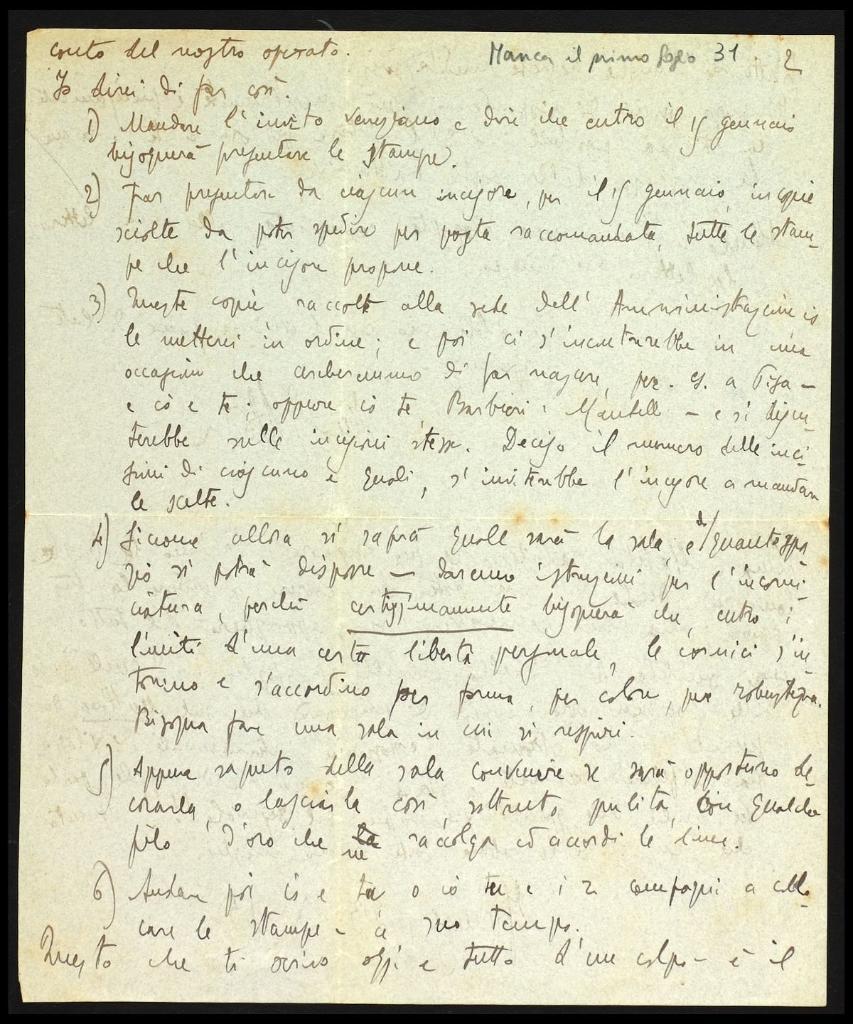 conto del nostro operato.
Manca il primo foglio 31 2
Io direi di far così.
1) Mandare l'invito veneziano e dire che entro il 15 gennaio
bisognerà presentare le stampe.
2) Far presentare da ciascun incisore, per il 15 gennaio, in copie
sciolte da poter spedire per posta raccomandata, tutte le stam-
pe che l'incisore propone.
3) Queste copie raccolte alla sede dell'Amministrazione io
le metterei in ordine; e poi ci s'incontrerebbe in una
occasione che cercheremmo di far nascere, per. es. a Pisa –
e io e te; oppure io te Barbieri i Mantell – e si discu-
terebbe sulle incisioni stesse. Deciso il numero delle inci-
sioni di ciascuno e quali, s'inviterebbe l'incisore a mandare
le scelte.
4) Siccome allora si saprà quale sarà la sala e di quanto spa-
zio si potrà disporre – daremo istruzioni per l'incorni-
ciatura, perchè certissimamente bisognerà che, entro i
limiti d'una certa libertà personale, le cornici s'in
tonino e s'accordino per forma, per colore, per robustezza.
Bisogna fare una sala in cui si respiri.
5) Appena saputo della sala convenire se sarà opportuno de-
corarla, o lasciarla così, soltanto pulita, con qualche
filo d'oro che la ne raccolga ed accordi le linee.
6) Andare poi io e tu o io tu e i 2 compagni a collo-
care le stampe – a suo tempo.
Questo che ti scrivo oggi e tutto d'un colpo – è il